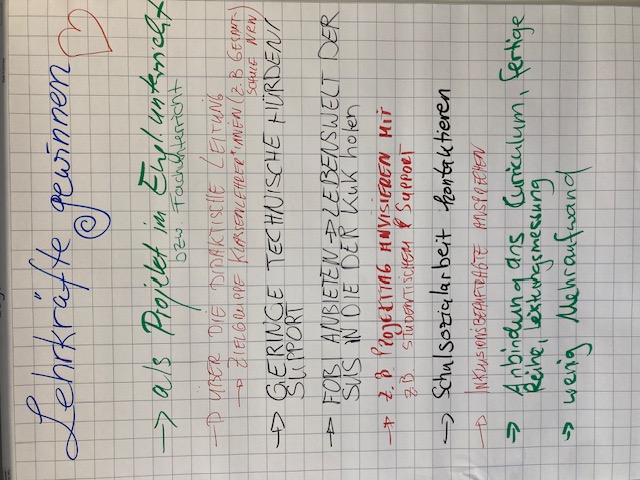 Lehrkräfte gewinnen
→ als Projekt im Engl.unterricht
bzw. Fachunterricht
→ ÜBER DIE DIDAKTISCHE LEITUNG
→ ZIELGRUPPE KLASSENLEHRER*INNEN (Z.B GESAMT-
SCHULE NRW)
→ GERINGE TECHNISCHE HÜRDEN/
SUPPORT
→ FOBI ANBIETEN → LEBENSWELT DER
SUS IN DIE DER KUK holen
→ Z.B PROJEKTTAG ANVISIEREN MIT
Z.B STUDENTISCHEM SUPPORT
→ Schulsozialarbeit kontaktieren
→ INKLUSIONSBEAUFTRAGTE ANSPRECHEN
→ Anbindung ans Curiculum, fertige
Reihe, Leistungsmessung
→ wenig Mehraufwand